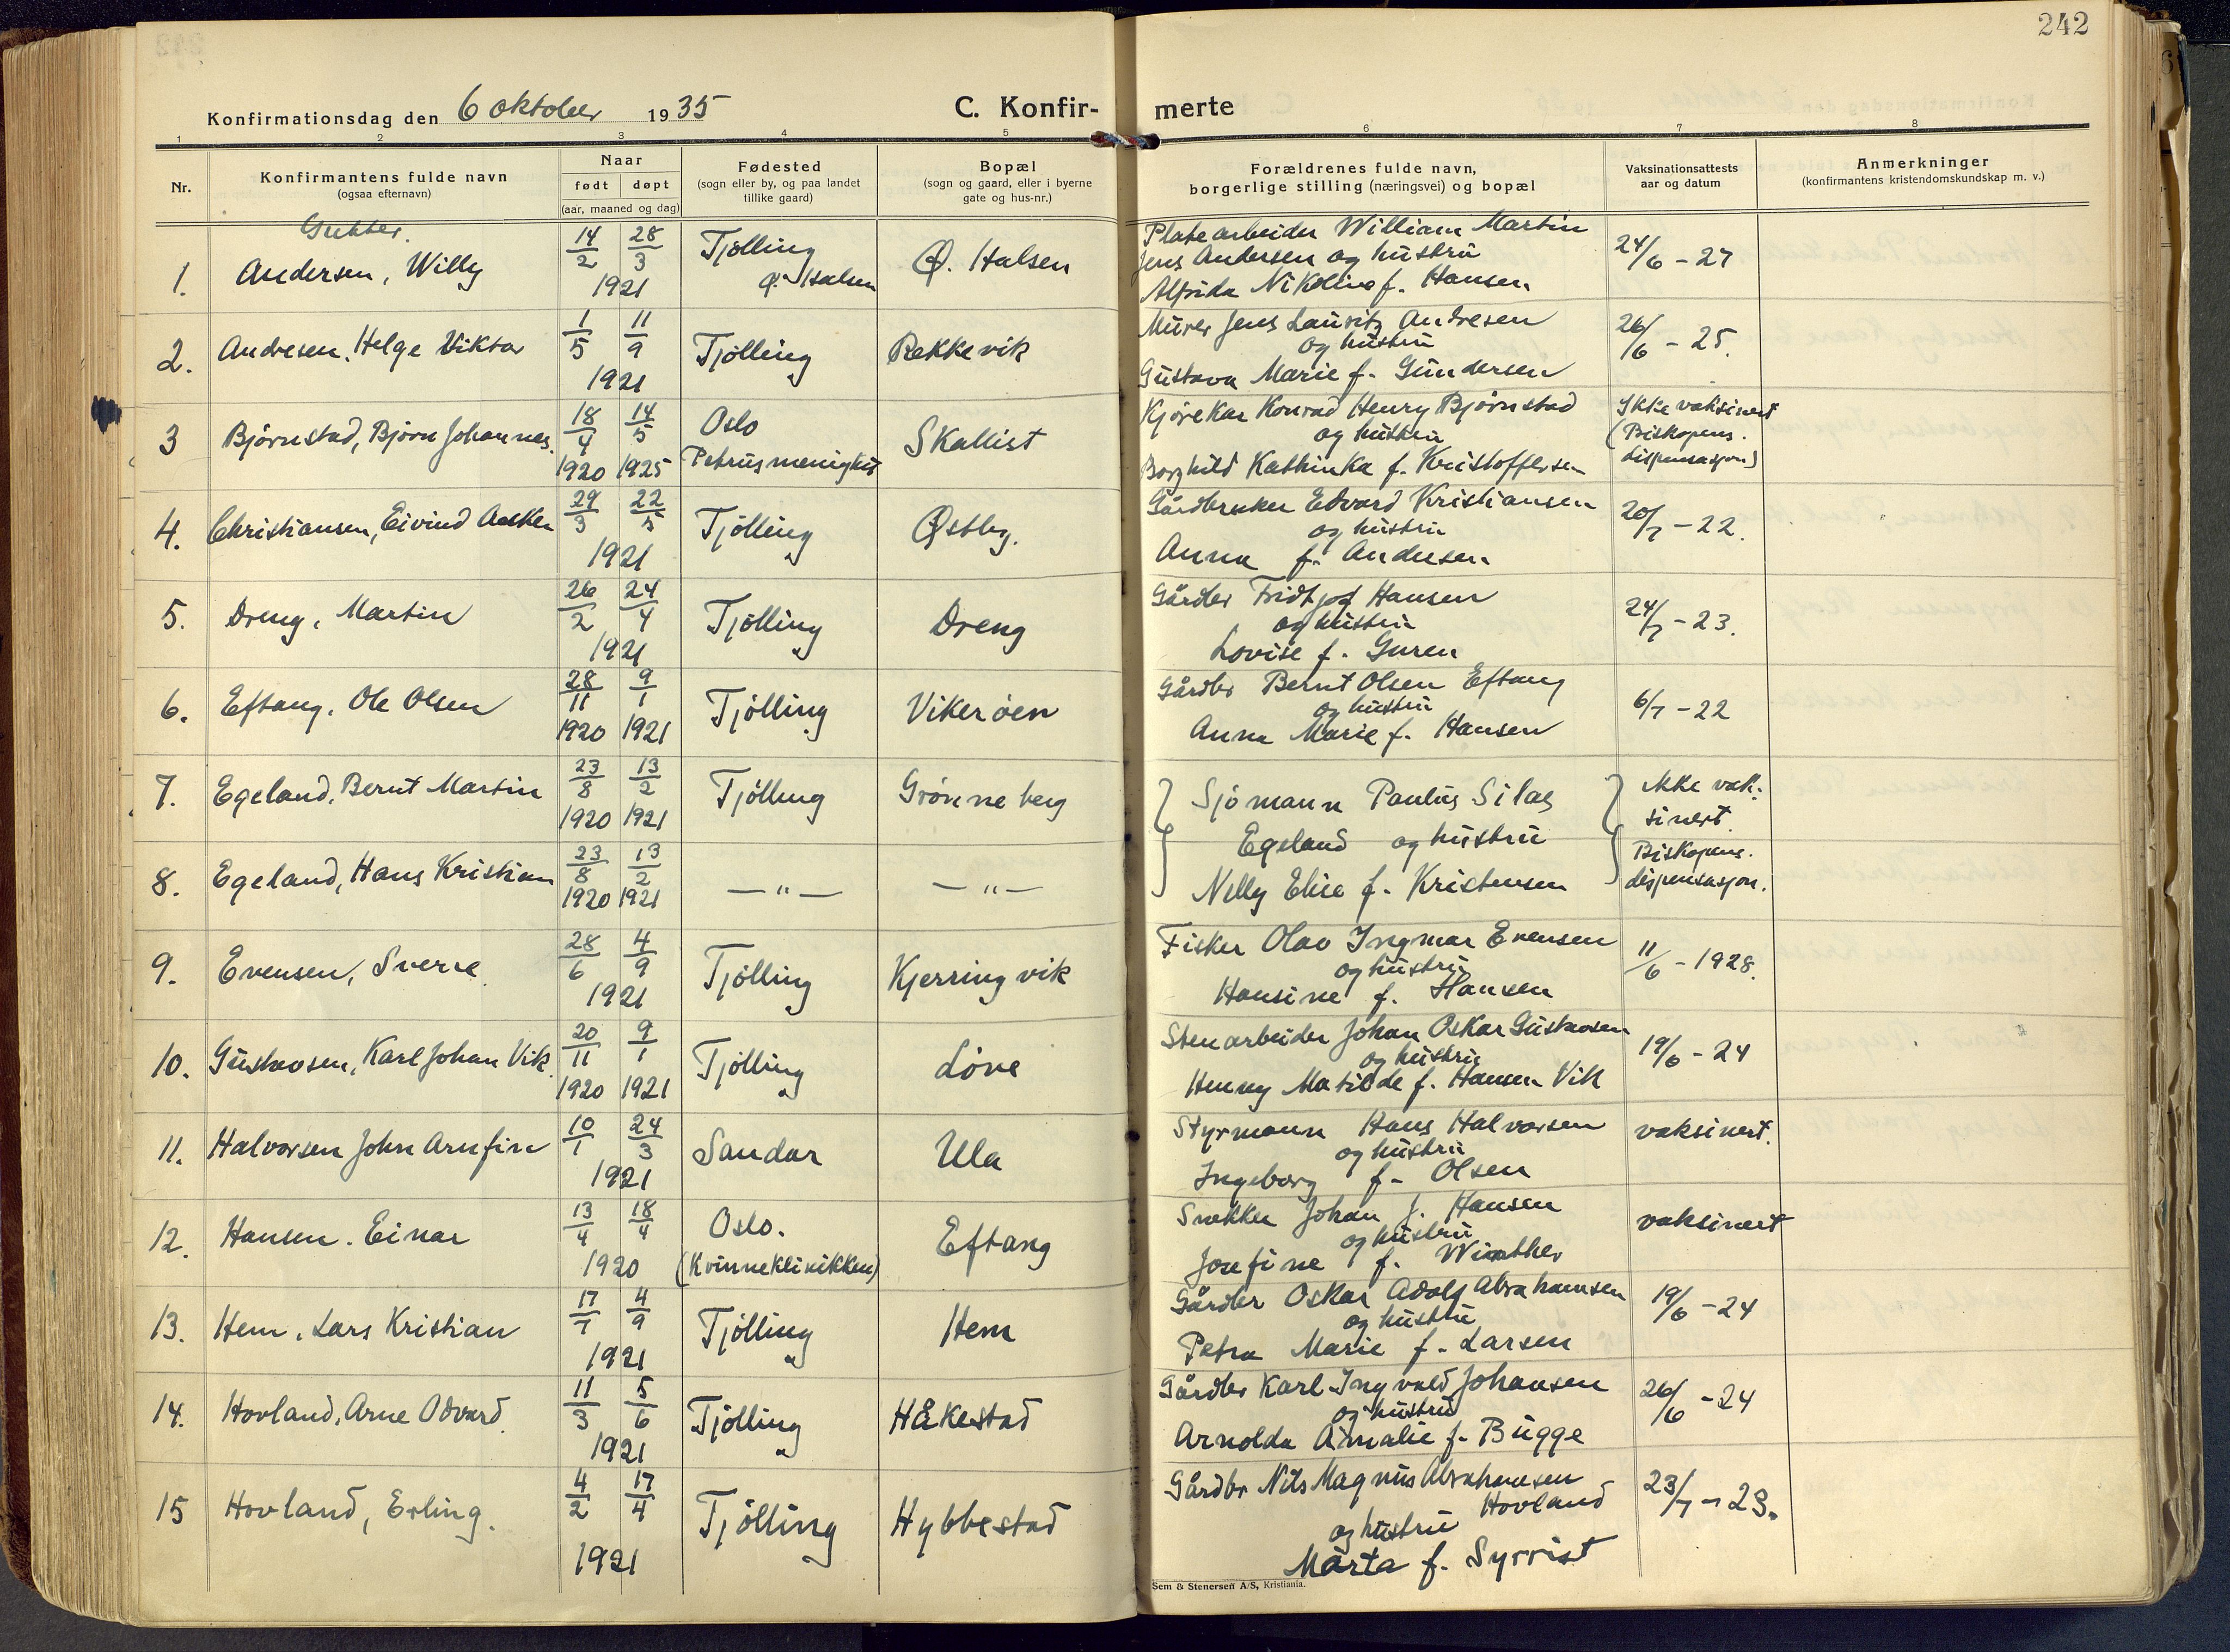 242
Konfirmationsdag den 6 oktober 1935
C. Konfir-
merte
1 2 3 4 5 6 7 8
Nr.
Konfirmantens fulde navn
(ogsaa efternavn)
Naar
født døpt
(aar, maaned og dag)
Fødested
(sogn eller by, og paa landet
tillike gaard)
Bopæl
(sogn og gaard, eller i byerne
gate og hus-nr.)
Forældrenes fulde navn,
borgerlige stilling (næringsvei) og bopæl
Vaksinationsattests
aar og datum
Anmerkninger
(konfirmantens kristendomskundskap m. v.)
Gutter.
1. Andersen, Willy
14/2 28/3
1921
Tjølling
Ø. Halsen
Ø. Halsen
Platearbeider William Martin
Jens Andersen og hustru
Alfrida Nikoline f. Hansen
24/6 - 27
2. Andresen, Helge Viktor
1/5 11/9
1921
Tjølling
Rekkevik
Murer Jens Lauritz Andresen
og hustru
Gustava Marie f. Gundersen
26/6 - 25.
3 Bjørnstad, Bjørn Johannes.
18/4 14/5
1920 1925
Oslo
Petrus menighet
Skallist
Kjørekar Konrad Henry Bjørnstad
og hustru
Borghild Kathinka f. Kristoffersen
Ikke vaksinert
(Biskopens.
dispensasjon)
4. Christiansen, Eivind Asker
29/3 22/5
1921
Tjølling
Østby.
Gårdbruker Edvard Kristiansen
og hustru
Anna f. Andersen
20/7 - 22.
5. Dreng, Martin
26/2 24/4
1921
Tjølling
Dreng
Gårdbr Fridtjof Hansen
og hustru
Lovise f. Guren
24/7 - 23.
6. Eftang, Ole Olsen
28/11 9/1
1920 1921
Tjølling
Vikerøen
Gårdbr Bernt Olsen Eftang
og hustru
Anna Marie f. Hansen
6/7 - 22
7. Egeland, Bernt Martin
23/8 13/2
1920 1921
Tjølling
Grønneberg
Sjømann Paulus Silas
Egeland og hustru
Nelly Elise f. Kristensen
ikke vak-
sinert.
Biskopens.
dispensasjon.
8. Egeland, Hans Kristian
23/8 13/2
1920 1921
— " —
— " —
9. Evensen, Sverre
28/6 4/9
1921
Tjølling
Kjerringvik
Fisker Olav Ingmar Evensen
og hustru
Hansine f. Hansen
11/6 - 1928.
10. Gustavsen, Karl Johan Vik.
20/11 9/1
1920 1921
Tjølling
Løve
Stenarbeider Johan Oskar Gustavsen
og hustru
Henny Matilde f. Hansen Vik
19/6 - 24
11. Halvorsen John Arnfin
10/1 24/3
1921
Sandar
Ula
Styrmann Hans Halvorsen
og hustru
Ingeborg f. Olsen
vaksinert.
12. Hansen. Einar
13/4 18/4
1920
Oslo.
(Kvinneklinikken)
Eftang
Snekker Johan J. Hansen
og hustru
Josefine f. Winther
vaksinert
13. Hem, Lars Kristian
17/7 4/9
1921
Tjølling
Hem
Gårdbr Oskar Adolf Abrahamsen
og hustru
Petra Marie f. Larsen
19/6 - 24
14. Hovland, Arne Odvard.
11/3 5/6
1921
Tjølling
Håkestad
Gårdbr Karl Ingvald Johansen
og hustru
Arnolda Amalie f. Bugge
26/6 - 24
15 Hovland, Erling.
4/2 17/4
1921
Tjølling
Hybbestad
Gårdbr Nils Magnus Abrahamsen
Hovland
og hustru
Marta f. Syrrist
23/7 - 23.
Sem & Stenersen A/S, Kristiania.